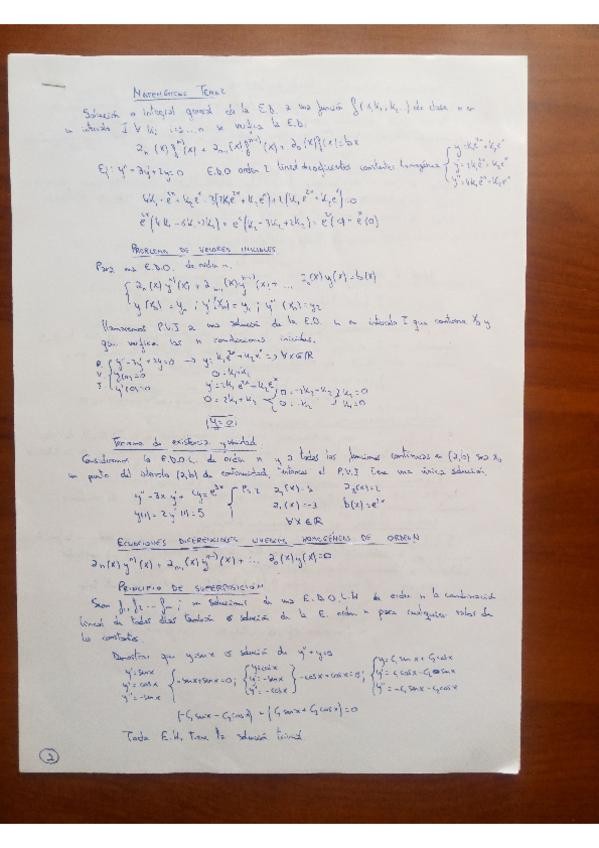 MATEMÁTICAS TEMA 2
Solución o integral general de la E.D. a una función f(x,k₁,k₂...) de clase n en
un intervalo I ∀ kᵢ i=1...n se verifica la E.D.
aₙ(x) fⁿ⁾(x) + aₙ₋₁(x) fⁿ⁻¹⁾(x) + a₀(x)f(x)=bx
Ej: y''-3y'+2y=0 E.D.O orden 2 lineal de coeficientes constantes homogénea
y=k₁e²ˣ+k₂eˣ
y'=2k₁e²ˣ+k₂eˣ
y''=4k₁e²ˣ+k₂eˣ
4k₁·e²ˣ+k₂eˣ-3(2k₁e²ˣ+k₂eˣ)+2(k₁e²ˣ+k₂eˣ)=0
e²ˣ(4k₁-6k₁+2k₁)+eˣ(k₂-3k₂+2k₂)=
PROBLEMA DE VALORES INICIALES
Para una E.D.O. de orden n.
aₙ(x)yⁿ⁾(x)+aₙ₋₁(x)yⁿ⁻¹⁾(x)+... a₀(x)y(x)=b(x)
y(x₀)=y₀; y'(x₀)=y₁; y''(x₀)=y₂
llamaremos P.V.I a una solución de la E.D. en un intervalo I que contiene x₀ y
que verifica las n condiciones iniciales.
P. V. I
y''-3y'+2y=0 → y=k₁e²ˣ+k₂eˣ ⇒ ∀x∈ℝ
y(0)=0 0=k₁+k₂
y'(0)=0 y'=2k₁e²ˣ+k₂eˣ
0=2k₁+k₂
k₂=0
k₁=0
y=0
Teorema de existencia y unicidad.
Consideramos la E.D.O.L. de orden n y a todas las funciones continuas en (a,b) sea x₀
un punto del intervalo (a,b) de continuidad, entonces el P.V.I tiene una única solución.
y''-3x y'
y(1)=2 y'(1)=5
b(x)=e²ˣ
∀x∈ℝ
ECUACIONES DIFERENCIALES LINEALES HOMOGÉNEAS DE ORDEN N
aₙ(x)yⁿ⁾(x)+aₙ₋₁(x)yⁿ⁻¹⁾(x)+... a₀(x)y(x)=0
PRINCIPIO DE SUPERPOSICIÓN
Sean f₁,f₂...fₘ; m soluciones de una E.D.O.L.H de orden n la combinación
lineal de todas ellas también es solución de la E. orden n para cualquier valor de
las constantes.
Demostrar que y=sinx es solución de y''+y=0
y=sinx
y'=cosx
y''=-sinx
-sinx+sinx=0;
y=cosx
y'=-sinx
y''=-cosx
-cosx+cosx=0;
y=C₁sinx+C₂cosx
y'=C₁cosx-C₂sinx
y''=-C₁sinx-C₂cosx
(-C₁sinx-C₂cosx)+(C₁sinx+C₂cosx)=0
Toda E.H. tiene la solución trivial
2